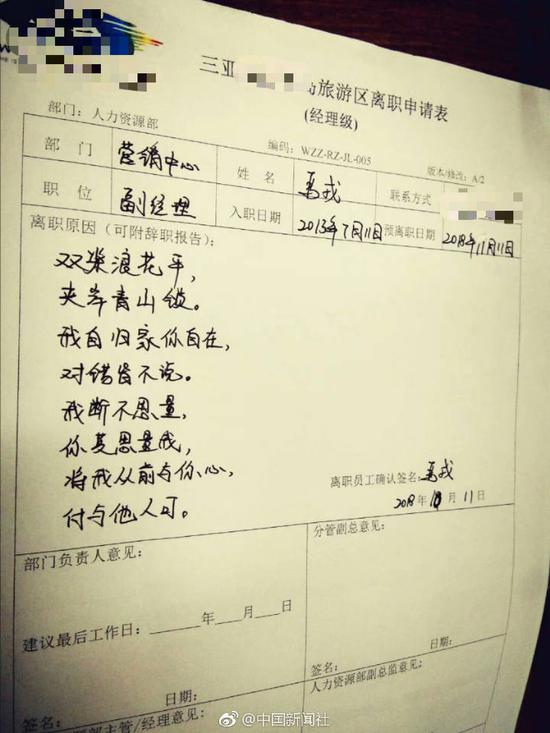 三亚 旅游区离职申请表
(经理级)
部门：人力资源部 编码：WZZ-RZ-JL-005 版本/修改：A/2
部 门 营销中心 姓 名 联系方式
职 位 副经理 入职日期 2013年7月11日 预离职日期 2018年11月11日
离职原因（可附辞职报告）：
双桨浪花平，
夹岸青山锁。
我自归家你自在，
对错皆不说。
我断不思量，
你莫思量我，
将我从前与你心，
付与他人可。
离职员工确认签名：
2018 年 10 月 11 日
部门负责人意见：
分管副总意见：
建议最后工作日：______年____月____日
日期：
签名：
日期：
签名：
人力资源部副总监意见：
部主管/经理意见：
@中国新闻社